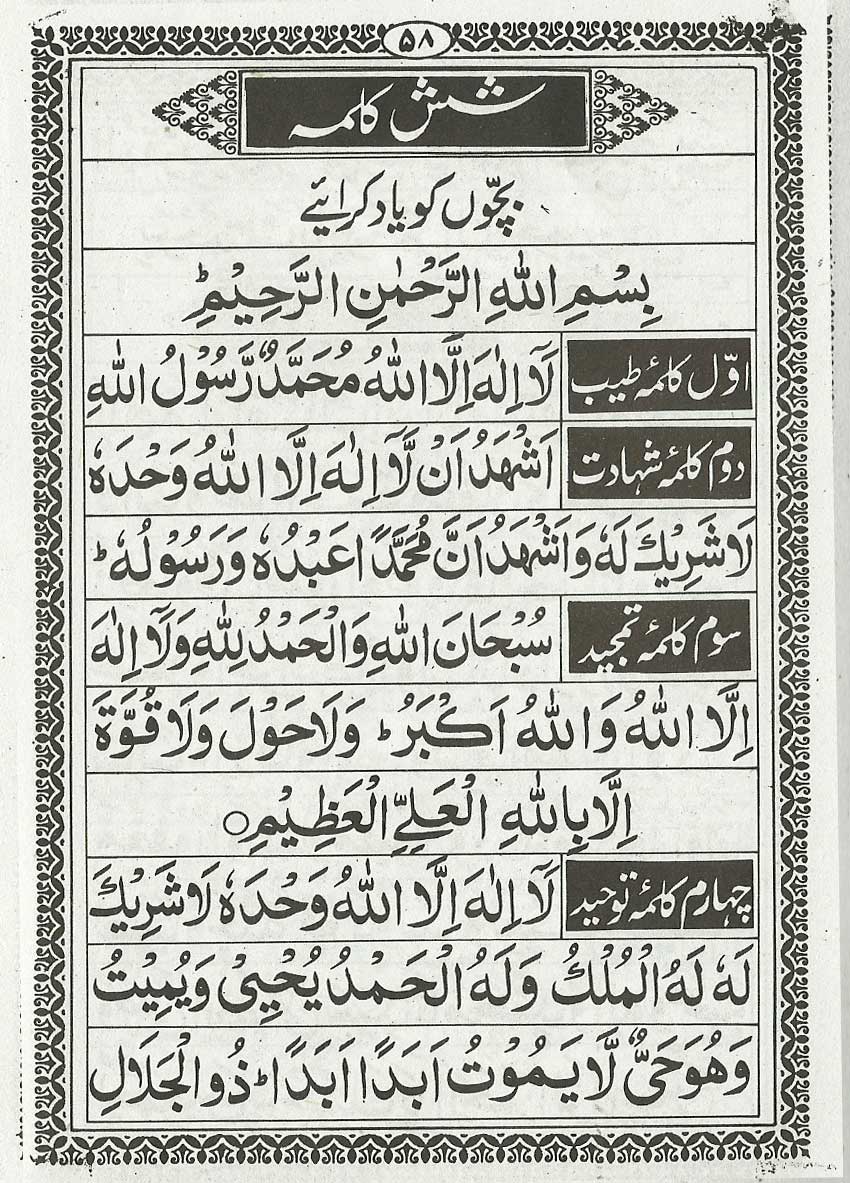 ۵۸
شش کلمہ
بچّوں کو یاد کرائیے
بِسْمِ اللهِ الرَّحْمٰنِ الرَّحِيْمِ ؕ
اوّل کلمۂ طیب لَآ اِلٰهَ اِلَّا اللهُ مُحَمَّدٌ رَّسُوْلُ اللهِ
دوم کلمۂ شہادت اَشْهَدُ اَنْ لَّآ اِلٰهَ اِلَّا اللهُ وَحْدَهٗ
لَا شَرِيْكَ لَهٗ وَاَشْهَدُ اَنَّ مُحَمَّدًا عَبْدُهٗ وَرَسُوْلُهٗ ؕ
سوم کلمۂ تمجید سُبْحَانَ اللهِ وَالْحَمْدُ لِلّٰهِ وَلَآ اِلٰهَ
اِلَّا اللهُ وَاللهُ اَكْبَرُ ؕ وَلَا حَوْلَ وَلَا قُوَّةَ
اِلَّا بِاللهِ الْعَلِيِّ الْعَظِيْمِ ○
چہارم کلمۂ توحید لَآ اِلٰهَ اِلَّا اللهُ وَحْدَهٗ لَا شَرِيْكَ
لَهٗ لَهُ الْمُلْكُ وَلَهُ الْحَمْدُ يُحْيِيْ وَيُمِيْتُ
وَهُوَ حَيٌّ لَّا يَمُوْتُ اَبَدًا اَبَدًا ؕ ذُو الْجَلَالِ